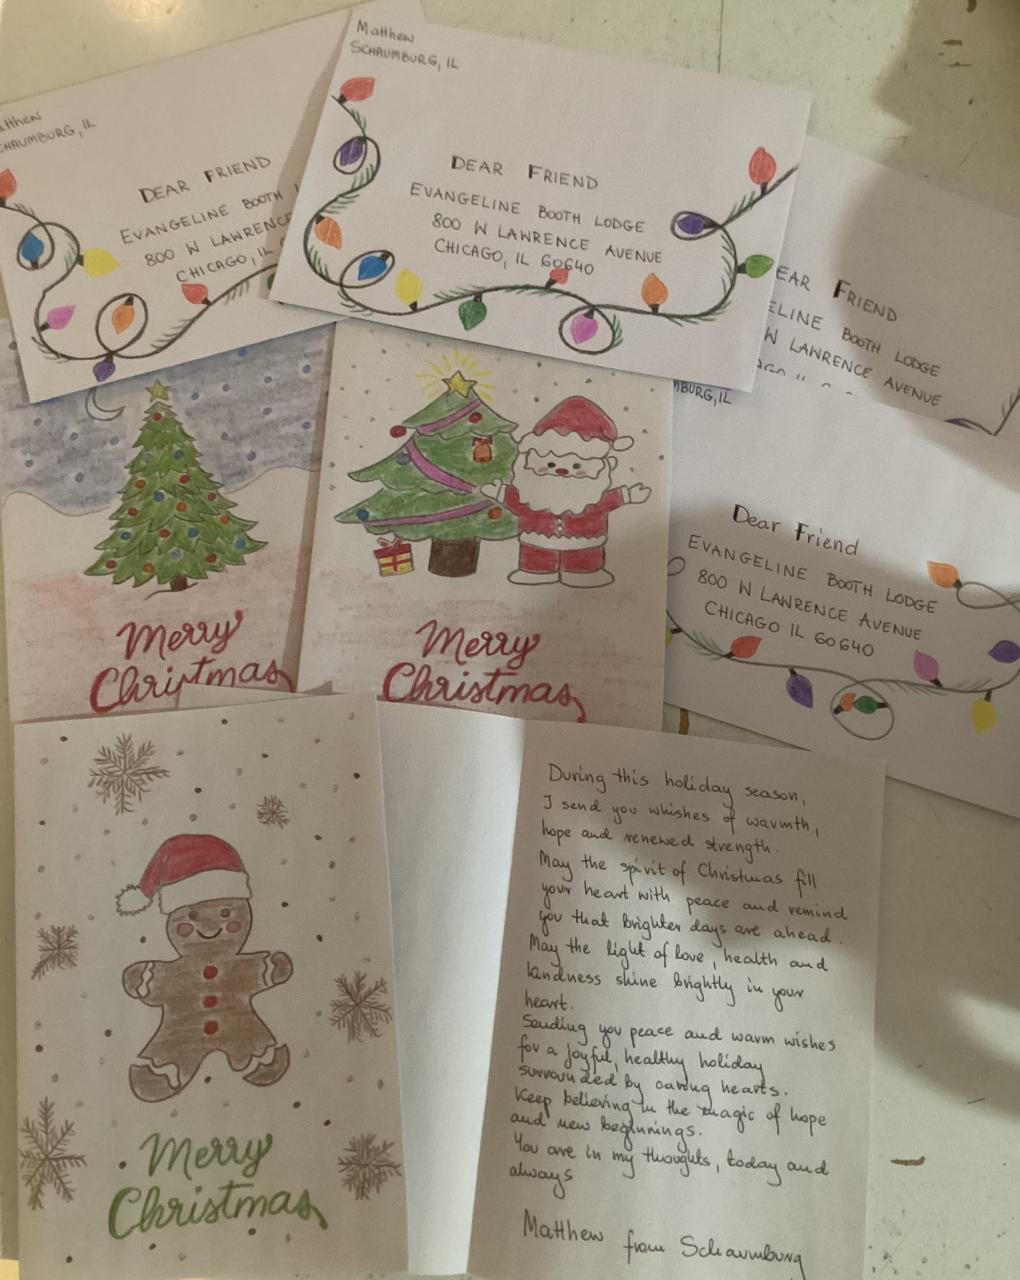 Matthew
SCHAUMBURG, IL
DEAR FRIEND
EVANGELINE BOOTH
800 W LAWRENCE
CHICAGO, IL
Matthew
SCHAUMBURG, IL
DEAR FRIEND
EVANGELINE BOOTH LODGE
800 W LAWRENCE AVENUE
CHICAGO, IL 60640
EAR FRIEND
ELINE BOOTH LODGE
W LAWRENCE AVENUE
MBURG, IL
Dear Friend
EVANGELINE BOOTH LODGE
800 W LAWRENCE AVENUE
CHICAGO IL 60640
Merry
Christmas
Merry
Christmas
Merry
Christmas
During this holiday season,
I send you whishes of warmth,
hope and renewed strength.
May the spirit of Christmas fill
your heart with peace and remind
you that brighter days are ahead.
May the light of love, health and
kindness shine brightly in your
heart.
Sending you peace and warm wishes
for a joyful, healthy holiday
surrounded by caring hearts.
Keep believing in the magic of hope
and new beginnings.
You are in my thoughts, today and
always
Matthew from Schaumburg